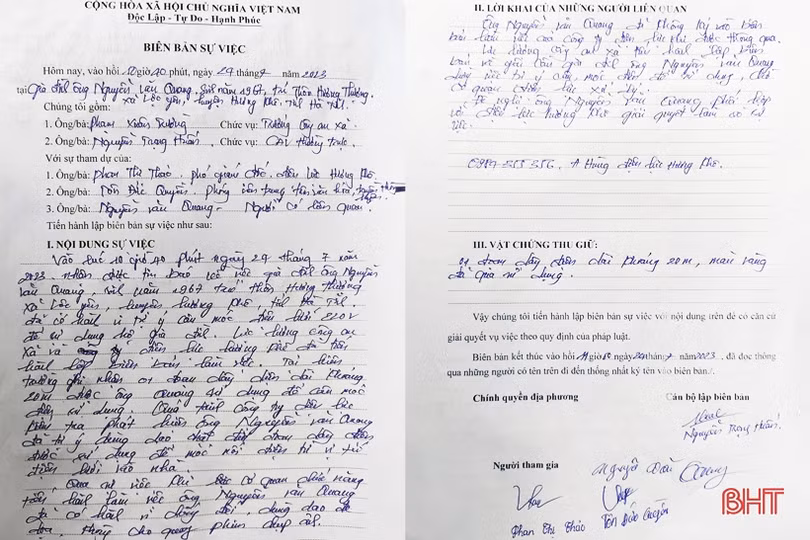 CỘNG HÒA XÃ HỘI CHỦ NGHĨA VIỆT NAM
Độc Lập - Tự Do - Hạnh Phúc
BIÊN BẢN SỰ VIỆC
Hôm nay, vào hồi 10 giờ 40 phút, ngày 29 tháng 7 năm 2023
tại Gia đình ông Nguyễn Văn Quang, sinh năm 1967, trú thôn Hương Thượng,
xã Lộc Yên, huyện Hương Khê, tỉnh Hà Tĩnh.
Chúng tôi gồm:
1. Ông/bà: Phan Xuân Chức vụ: Trưởng công an xã.
2. Ông/bà: Nguyễn Trọng Chức vụ: CA thường trực.
Với sự tham dự của:
1. Ông/bà: Phan Thị Thảo. phó giám đốc điện lực Hương Khê
2. Ông/bà: Tôn Đức Quyền. Phóng viên trung tâm văn hóa, truyền thông
3. Ông/bà: Nguyễn Văn Quang - Người có liên quan.
Tiến hành lập biên bản sự việc như sau:
I. NỘI DUNG SỰ VIỆC
Vào lúc 10 giờ 40 phút ngày 29 tháng 7 năm
2023. nhận được tin báo về việc gia đình ông Nguyễn
Văn Quang, sinh năm 1967 trú thôn Hương Thượng
xã Lộc Yên, huyện Hương Khê, tỉnh Hà Tĩnh.
đã có hành vi tự ý câu móc điện lưới 220V
để sử dụng hộ gia đình. Lực lượng công an
xã và điện lực Hương Khê đã tiến
hành lập biên bản làm việc. Tại hiện
trường ghi nhận 01 đoạn dây điện dài khoảng
20m được ông Quang sử dụng để câu móc
điện sử dụng. Quá trình công ty điện lực
kiểm tra phát hiện ông Nguyễn Văn Quang
đã tự ý dùng dao chặt đứt đoạn dây điện
được sử dụng để móc nối điện từ vị trí
điện lưới vào nhà.
Quá sự việc khi được cơ quan chức năng
tiến hành làm việc ông Nguyễn Văn Quang
đã có hành vi chống đối, dùng dao đe
dọa, không cho quay phim chụp ảnh.
II. LỜI KHAI CỦA NHỮNG NGƯỜI LIÊN QUAN
Ông Nguyễn Văn Quang đã không ký vào biên
bản làm việc của công ty điện lực khi được thông qua.
Lực lượng công an xã tiến hành lập biên
bản về gia đình ông Nguyễn Văn Quang
việc tự ý câu móc điện để sử dụng, chờ
cơ quan xử lý.
Đề nghị ông Nguyễn Văn Quang phối hợp
với điện lực Hương Khê giải quyết làm rõ sự
việc.
A Hùng điện lực Hương Khê.
III. VẬT CHỨNG THU GIỮ:
01 đoạn dây điện dài khoảng 20m, màu vàng
đã qua sử dụng.
Vậy chúng tôi tiến hành lập biên sự việc với nội dung trên để có căn cứ
giải quyết vụ việc theo quy định của pháp luật.
Biên bản kết thúc vào hồi ngày 29 tháng 7 năm 2023, đã đọc thông
qua những người có tên trên đi đến thống nhất ký tên vào biên bản./.
Chính quyền địa phương Cán bộ lập biên bản
Nguyễn Trọng
Người tham gia
Nguyễn Văn Quang
Phan Thị Thảo Tôn Đức Quyền
BHT